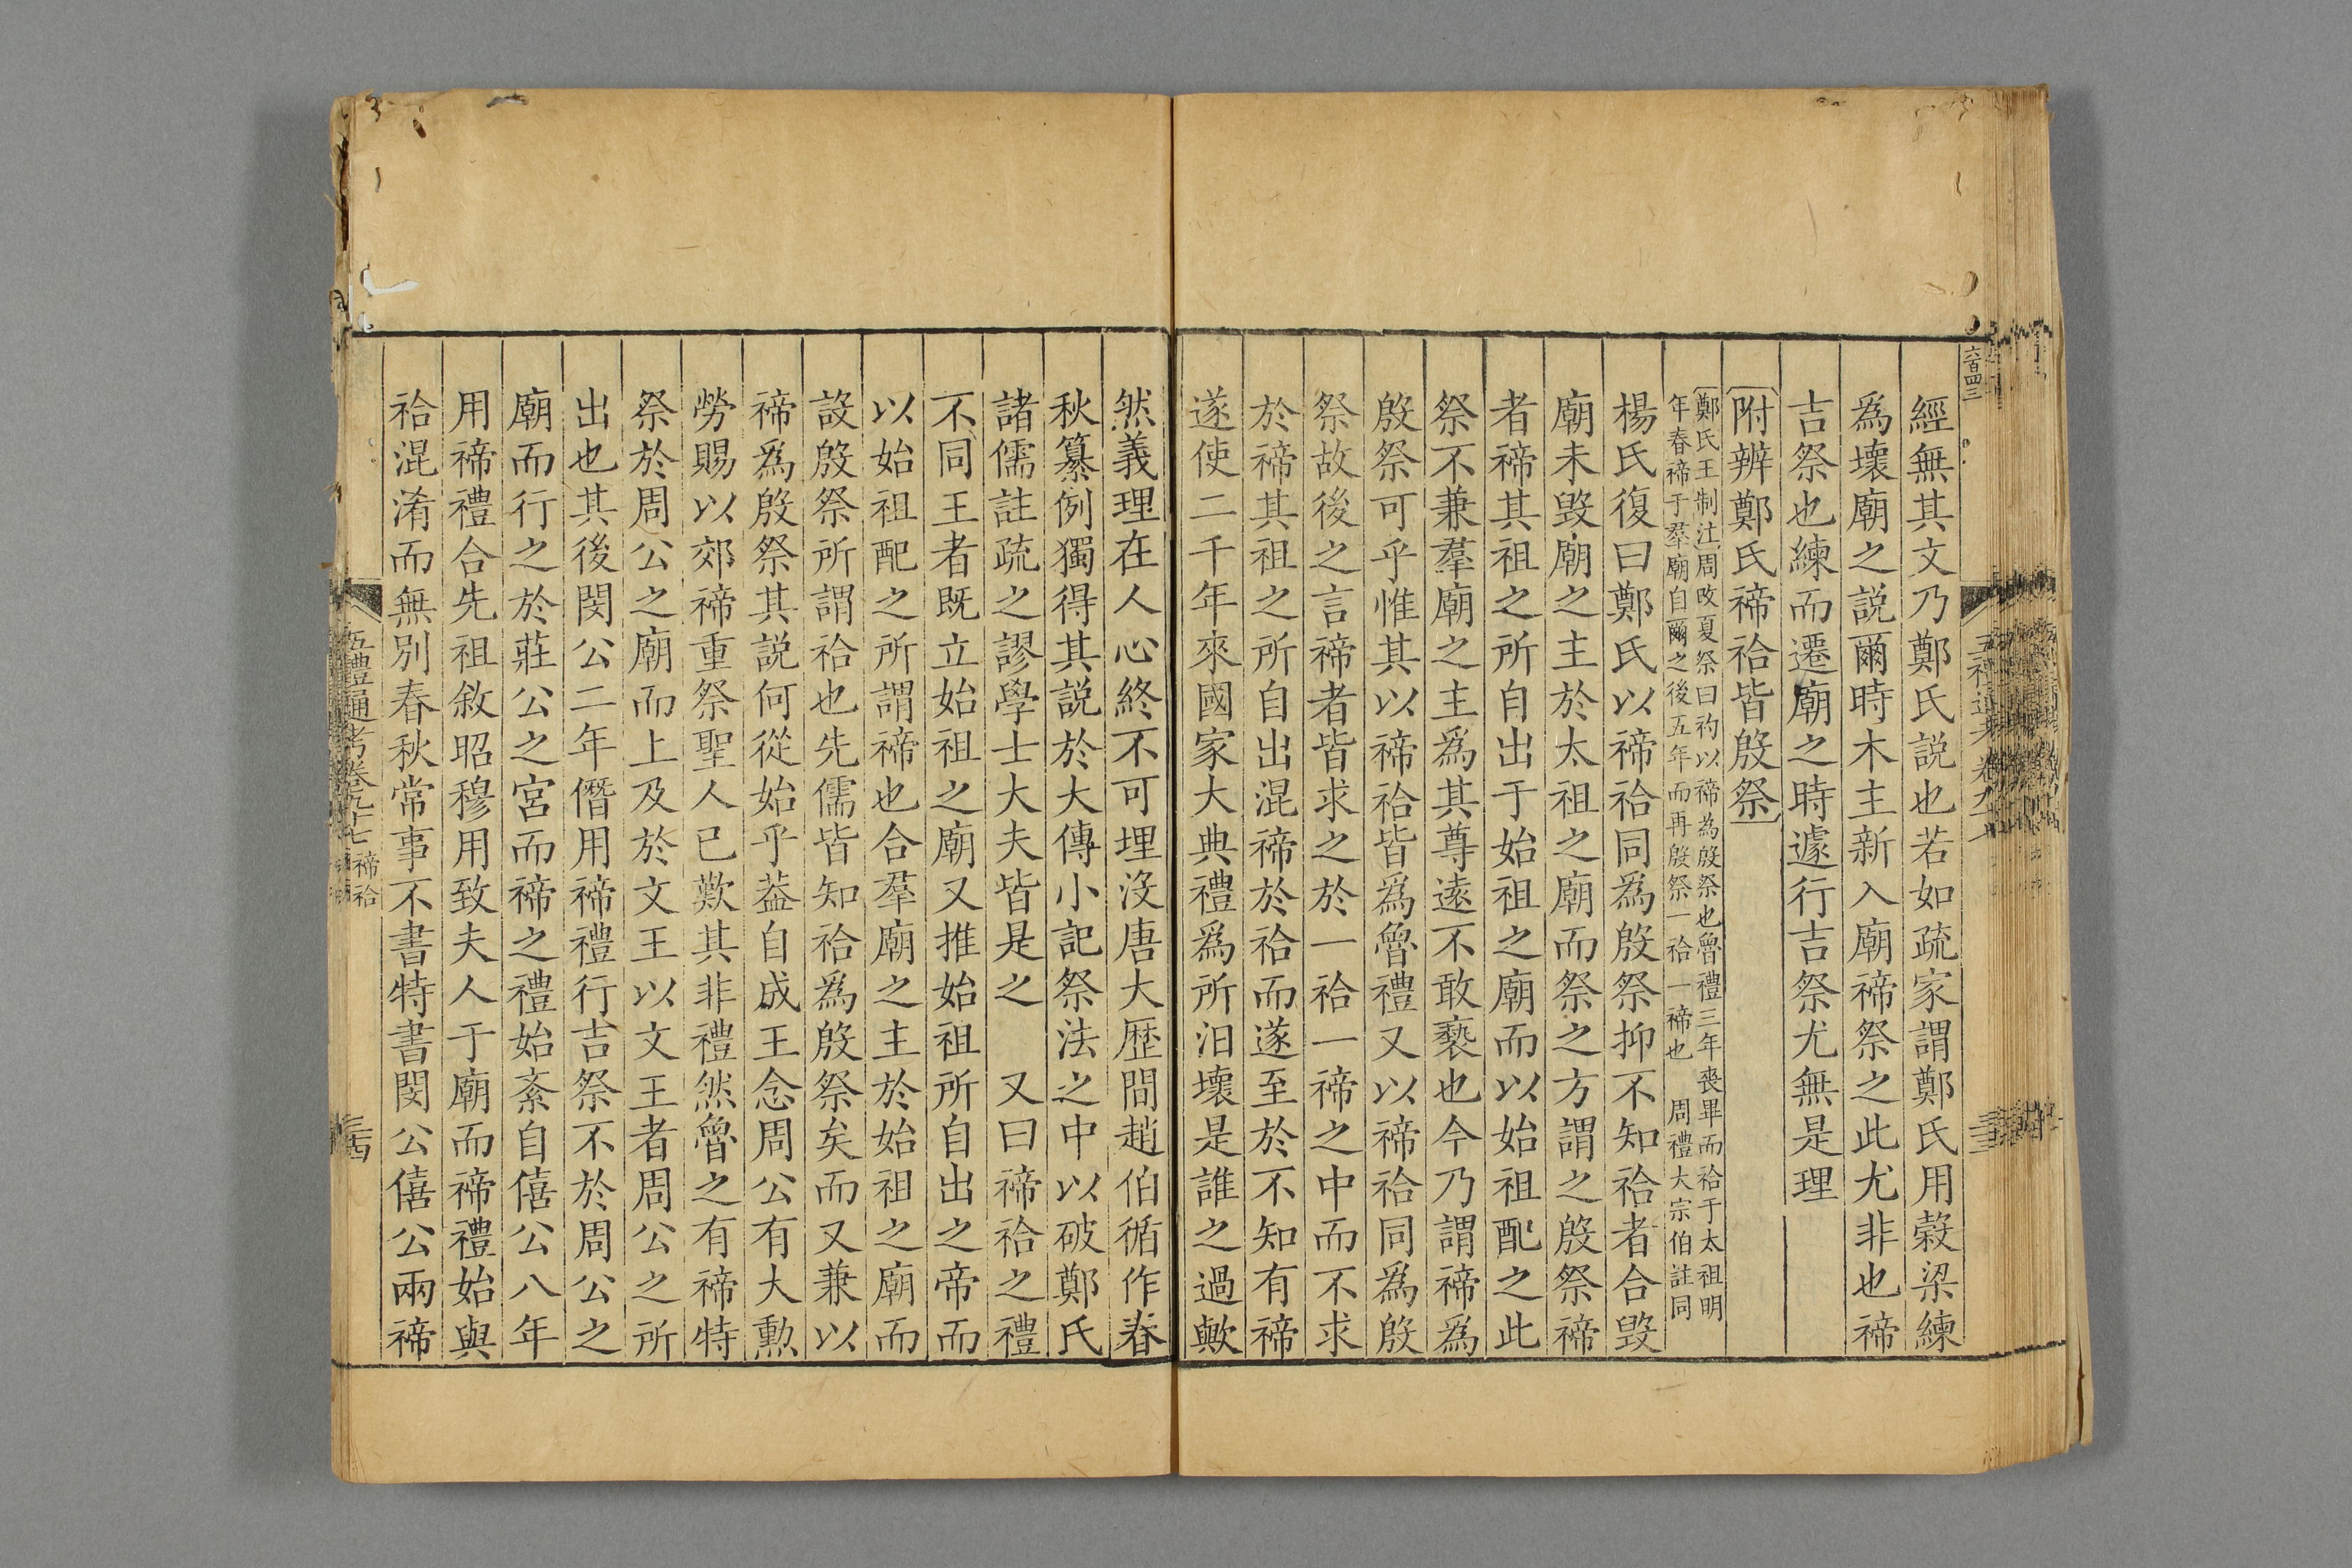 六百四三
經無其文乃鄭氏説也若如疏家謂鄭氏用穀梁練
爲壞廟之説爾時木主新入廟禘祭之此尤非也禘
吉祭也練而遷廟之時遽行吉祭尤無是理
附辨鄭氏禘祫皆殷祭
鄭氏王制注周改夏祭曰礿以禘為殷祭也魯禮三年喪畢而祫于太祖明
年春禘于羣廟自爾之後五年而再殷祭一祫一禘也 周禮大宗伯註同
楊氏復曰鄭氏以禘祫同爲殷祭抑不知祫者合毀
廟未毀廟之主於太祖之廟而祭之方謂之殷祭禘
者禘其祖之所自出于始祖之廟而以始祖配之此
祭不兼羣廟之主爲其尊遠不敢褻也今乃謂禘爲
殷祭可乎惟其以禘祫皆爲魯禮又以禘祫同爲殷
祭故後之言禘者皆求之於一祫一禘之中而不求
於禘其祖之所自出混禘於祫而遂至於不知有禘
遂使二千年來國家大典禮爲所汩壞是誰之過歟
然義理在人心終不可埋沒唐大歴間趙伯循作春
秋纂例獨得其説於大傳小記祭法之中以破鄭氏
諸儒註疏之謬學士大夫皆是之 又曰禘祫之禮
不同王者既立始祖之廟又推始祖所自出之帝而
以始祖配之所謂禘也合羣廟之主於始祖之廟而
設殷祭所謂祫也先儒皆知祫爲殷祭矣而又兼以
禘爲殷祭其説何從始乎葢自成王念周公有大勲
勞賜以郊禘重祭聖人已歎其非禮然魯之有禘特
祭於周公之廟而上及於文王以文王者周公之所
出也其後閔公二年僭用禘禮行吉祭不於周公之
廟而行之於莊公之宮而禘之禮始紊自僖公八年
用禘禮合先祖敘昭穆用致夫人于廟而禘禮始與
祫混淆而無別春秋常事不書特書閔公僖公兩禘
五禮通考卷九十七 禘祫